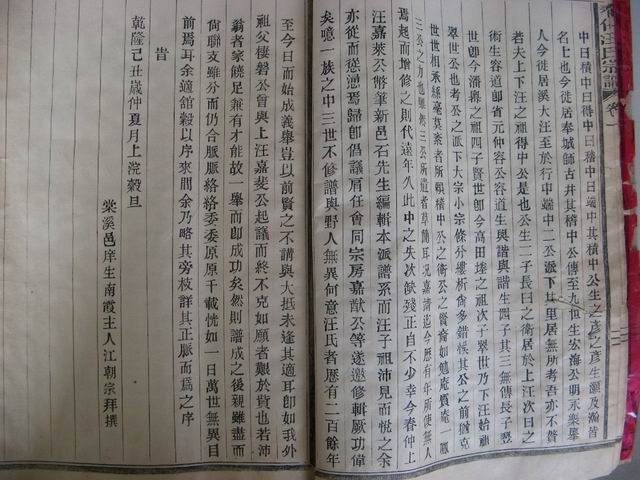 汪氏宗譜 卷一
中曰積中曰得中曰稽中曰端中其積中公生之彥之彥生灝及瀚皆
名士也今徙居奉城師古井其稽中公傳至九世生宏海公明永樂舉
人今徙居溪大汪至於行中端中二公派下其里居無所考吾亦不贅
若夫上下汪之祖得中公是也公生二子長曰之衛居於上江次曰之
術生容道即省元仲容公容道生與諧與諧生四子其三無傳長子愨
世即今潘縣之祖四子賢世即今高田埄之祖次子翠世乃下汪始祖
翠世公也考公之派下大宗小宗條分縷析奇多錯候其公之前猶克
世世相承絲毫莫紊者所賴積中公之衛公之賢裔如勉庵質庵一鳳
三公之力也雖然三公所遺者草簡耳況嘉靖迄今歷有年所使無人
焉起而增修之則代遠年久此中之失次缺殘正自不少幸今春仲上
汪嘉萊公幣筆新邑石先生編輯本派譜系而汪子祖沛見而悅之余
亦從而慫慂焉歸即倡議肩任會同宗房嘉猷公等遂邀修輯厥功偉
矣噫一族之中三世不修譜與野人無異何意汪氏者歷有二百餘年
至今日而始成義舉豈以前賢之不講與大抵未逢其適耳即如我外
祖父棲磐公曾與上汪嘉斐公起議而終不克如願者艱於貲也若沛
翁者家饒足兼有才能故一舉而即成功矣然則譜成之後親雖盡而
尙聯支雖分而仍合脈脈絡絡委委原原千載恍如一日萬世無異目
前焉耳余適館穀以序來間余乃略其旁枝詳其正脈而爲之序
旹
乾隆己丑歲仲夏月上浣穀旦
棠溪邑庠生南霞主人江朝宗拜撰